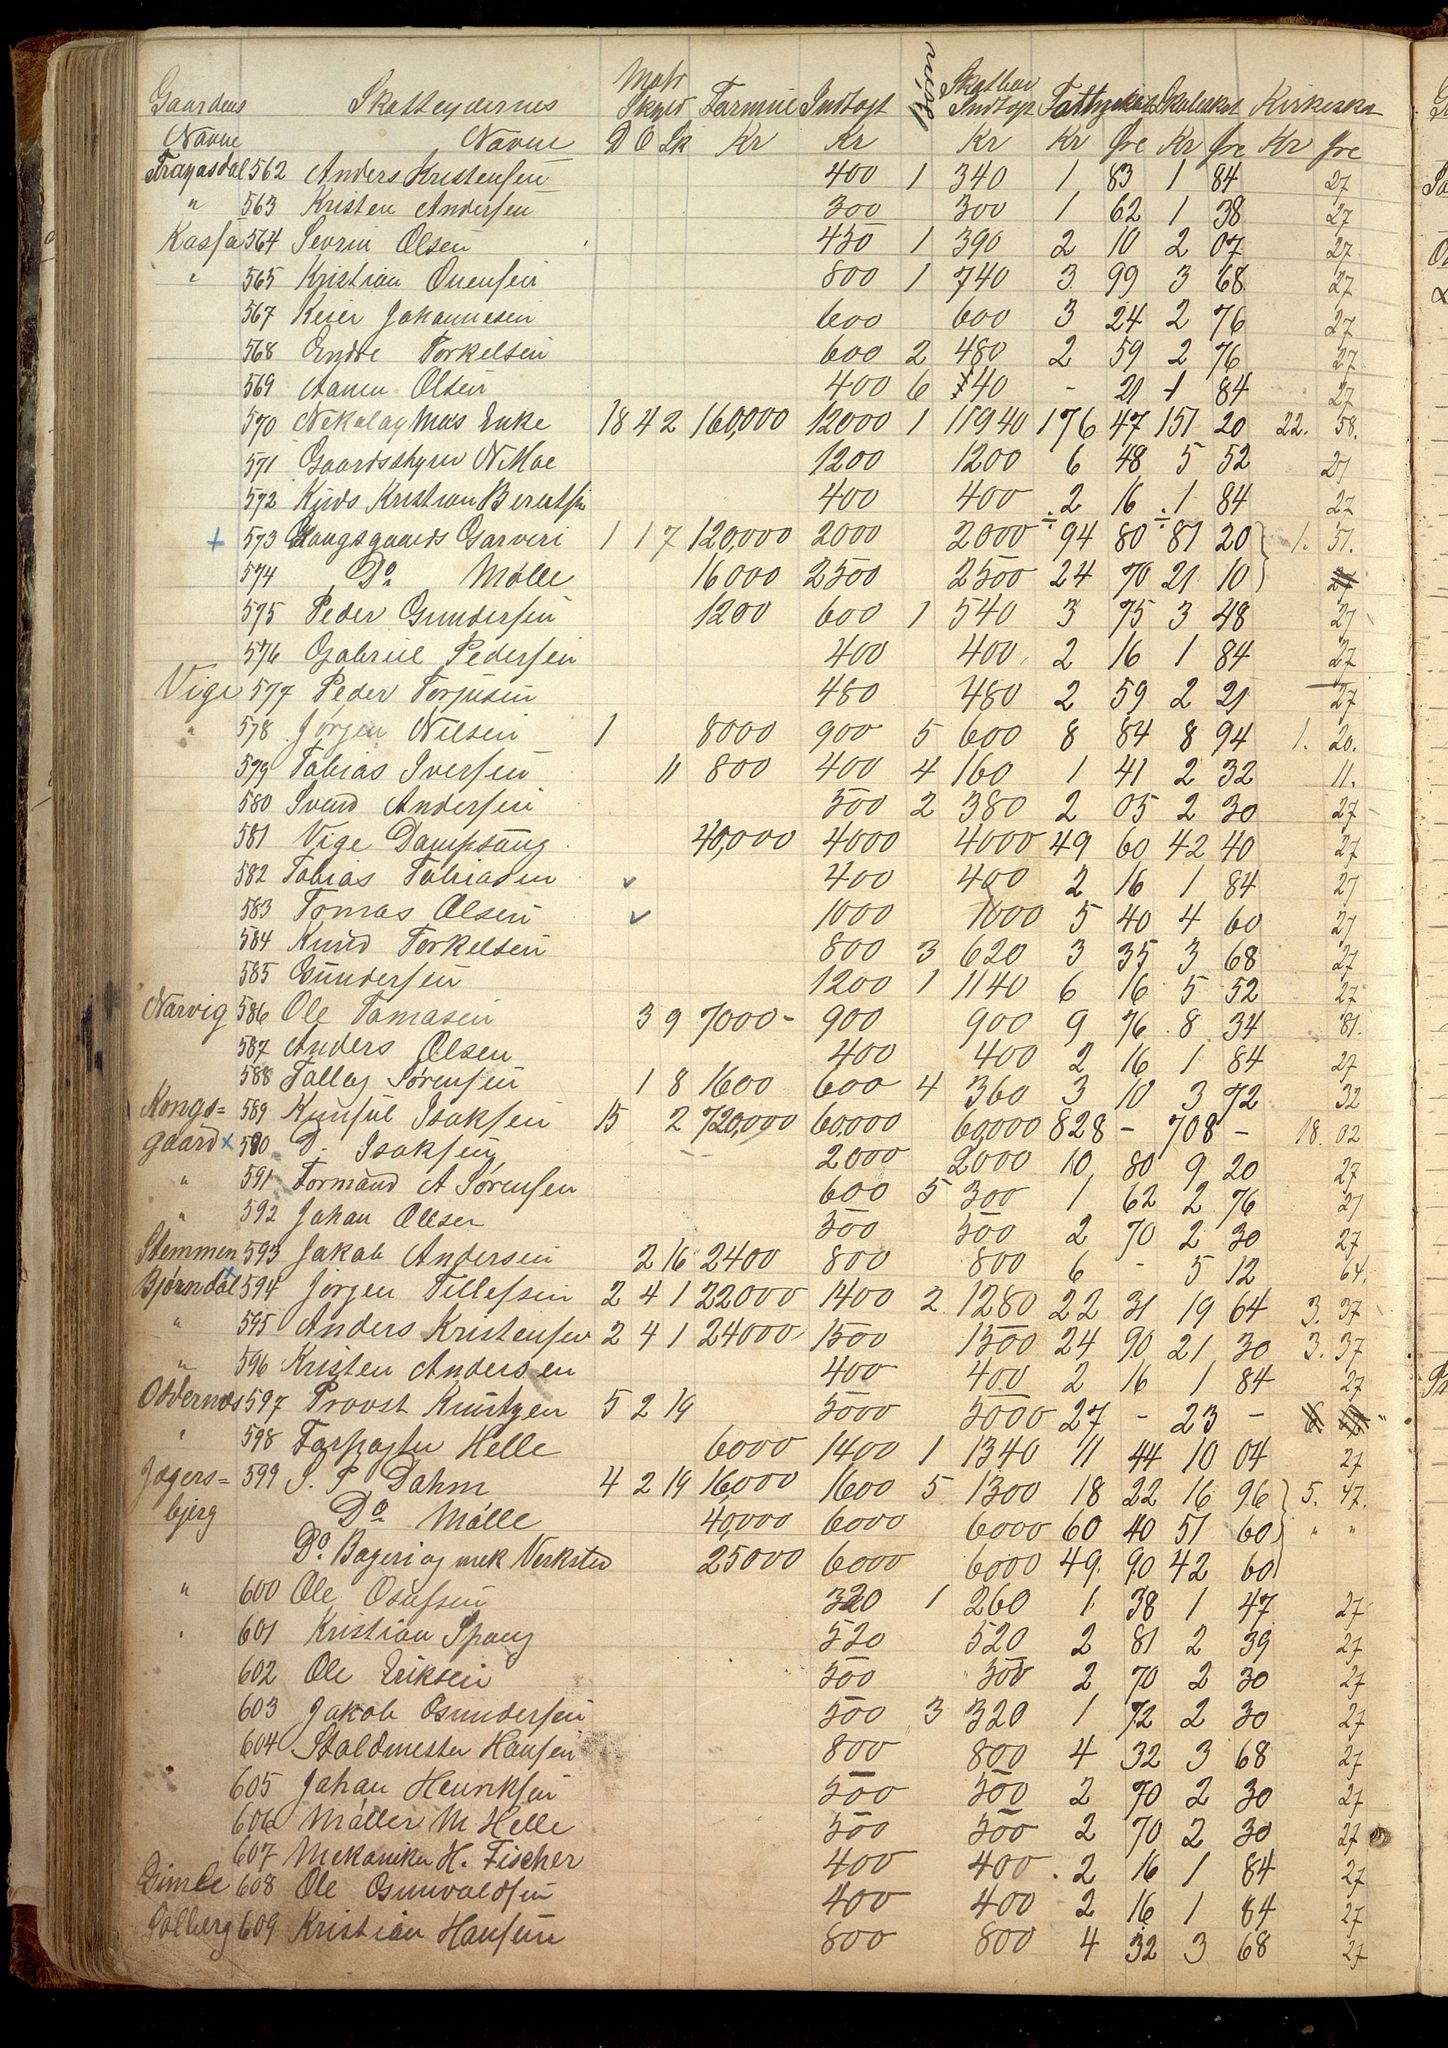 Gaardens Skatteydernes Matr Skyld Formue Indtægt Børn Skatbar Indtægt Fattigskat Skoleskat Kirkeskat
Navne Navne D O Sk Kr Kr Kr Kr Øre Kr Øre Kr Øre
562 Anders Kristensen 400 1 340 1 83 1 84 27
" 563 Kristen Andersen 300 300 1 62 1 38 27
564 Sevrin Olsen 450 1 390 2 10 2 07 27
" 565 Kristian 800 1 740 3 99 3 68 27
567 Johannesen 600 600 3 24 2 76 27
568 Endre Torkelsen 600 2 480 2 59 2 76 27
569 Aanen Olsen 400 6 40 - 21 1 84 27
570 Nikolay Moes Enke 18 4 2 160,000 12000 1 11940 176 47 151 20 22. 58.
571 Gaardstyrer N Moe 1200 1200 6 48 5 52 27
572 Kristian 400 400 2 16 1 84 27
+ 573 Kongsgaards Garveri 1 1 7 120,000 2000 2000 ÷ 94 80 ÷ 81 20 1. 51.
574 Do Mølle 16000 2500 2500 24 70 21 10
575 Peder Gundersen 1200 600 1 540 3 75 3 48 27
576 Gabriel Pedersen 400 400 2 16 1 84 27
Vige 577 Peder Torjusen 480 480 2 59 2 21 27
" 578 Jørgen Nilsen 1 8000 900 5 600 8 84 8 94 1. 20.
579 Tobias Iversen 11 800 400 4 160 1 41 2 32 11.
580 Svend Andersen 500 2 380 2 05 2 30 27
581 Vige Dampsaug 40,000 4000 4000 49 60 42 40 27
582 Tobias Tobiasen 400 400 2 16 1 84 27
583 Tomas Olsen 1000 1000 5 40 4 60 27
584 Knud Torkelsen 800 3 620 3 35 3 68 27
585 Gundersen 1200 1 1140 6 16 5 52 27
Narvig 586 Ole Tomasen 3 9 7000- 900 900 9 76 8 34 81.
587 Anders Olsen 400 400 2 16 1 84 27
588 Tallag Sørensen 1 8 1600 600 4 360 3 10 3 72 32
Kongs= 589 Kunsul Isaksen 15 2 720,000 60,000 60,000 828 - 708 - 18. 02
gaard + 590 D. Isaksen 2000 2000 10 80 9 20 27
" 591 Formand A Sørensen 600 5 300 1 62 2 76 27
" 592 Johan Olsen 500 500 2 70 2 30 27
Stemmen 593 Jakob Andersen 2 16 2400 800 800 6 - 5 12 64.
Bjørndal 594 Jørgen Tellefsen 2 4 1 22000 1400 2 1280 22 31 19 64 3. 37
" 595 Anders Kristensen 2 4 1 24000 1500 1500 24 90 21 30 3. 37
" 596 Kristen Andersen 400 400 2 16 1 84 27
Oddernes 597 Provst Knutzen 5 2 19 5000 5000 27 - 23 -
" 598 Forpagter Helle 6000 1400 1 1340 11 44 10 04 27
Jægers= 599 S. P Dahm 4 2 19 16,000 1600 5 1300 18 22 16 96 5. 47.
bjerg Do Mølle 40,000 6000 6000 60 40 51 60 " "
Do Bageri og mek Verksted 25000 6000 6000 49 90 42 60
" 600 Ole Osufsen 320 1 260 1 38 1 47 27
" 601 Kristian Spang 520 520 2 81 2 39 27
602 Ole Eriksen 500 500 2 70 2 30 27
603 Jakob Osmundsen 500 3 320 1 72 2 30 27
" 604 Staldmester Hansen 800 800 4 32 3 68 27
605 Johan Henriksen 500 500 2 70 2 30 27
606 Møller M Helle 500 500 2 70 2 30 27
607 Mekaniker H. Fischer 400 400 2 16 1 84 27
608 Ole Osmundsen 400 400 2 16 1 84 27
Solberg 609 Kristian Hansen 800 800 4 32 3 68 27